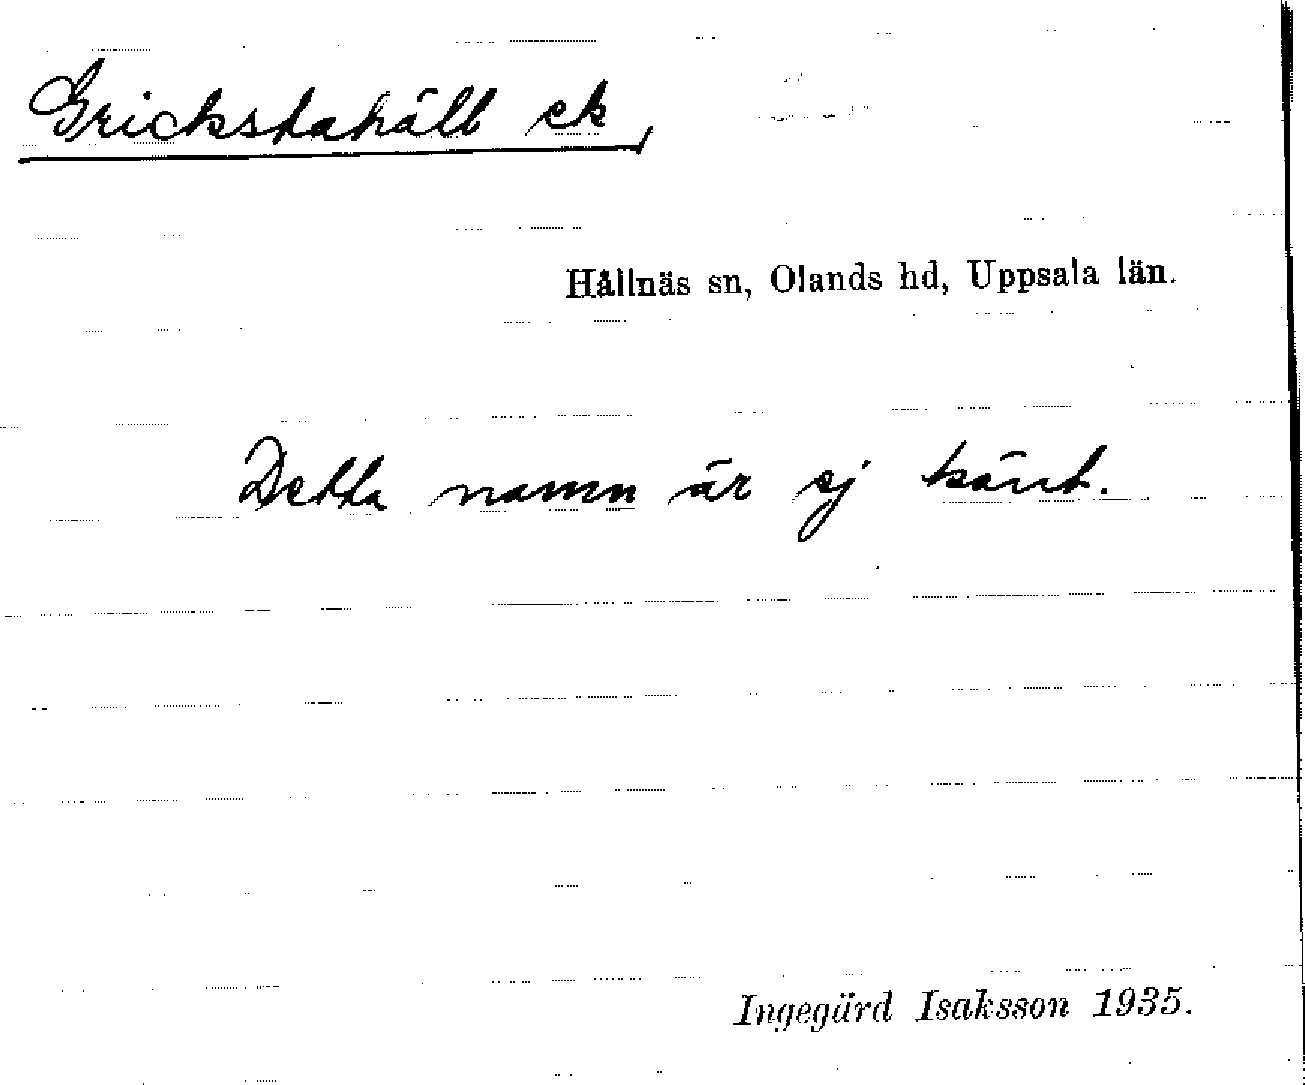 Grickstahäll ek,
Hållnäs sn, Olands hd, Uppsala län.
Detta namn är ej känt.
Ingegärd Isaksson 1935.